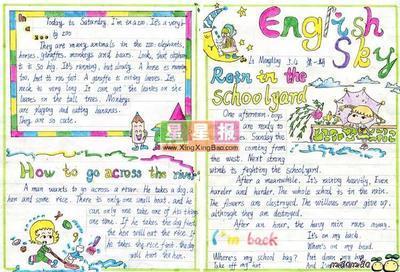 In a zoo
Today is Saturday. I'm in a zoo. It's a very
big zoo
They are many animals in the zoo: elephants,
horses, giraffes, monkeys and bears. Look, that elephant
is so big. It's running, but slowly. A horse is running
too, but it's fast. A giraffe is eating leaves. It's
neck is very long. It can get the leaves on the
leaves on the tall trees. Monkeys
are playing and eating bananas.
They are so cute.
English
Sky
Rain in the
schoolyard
One afternoon, boys
are ready to
coming from the
west. Next strong
winds is fighting the schoolyard.
After a meanwhile. It's raining heavily. Even
harder and harder. The whole school is in the rain.
The flowers are destroyed. The willows never give up,
although they are destroyed.
After an hour, the heavy rain runs away.
星星报
www.XingXingBao.com
How to go across the river
A man wants to go across a river. He takes a dog, a
hen and some rice. There is only one small boat, and he
can only take one of his things
one time. If he takes the dog first,
the hen will eat the rice. If
he takes the rice first, the dog
will eat the hen.
I'm back
It's on my back.
What's on my bed.
Where's my school bag?
Take off my hat